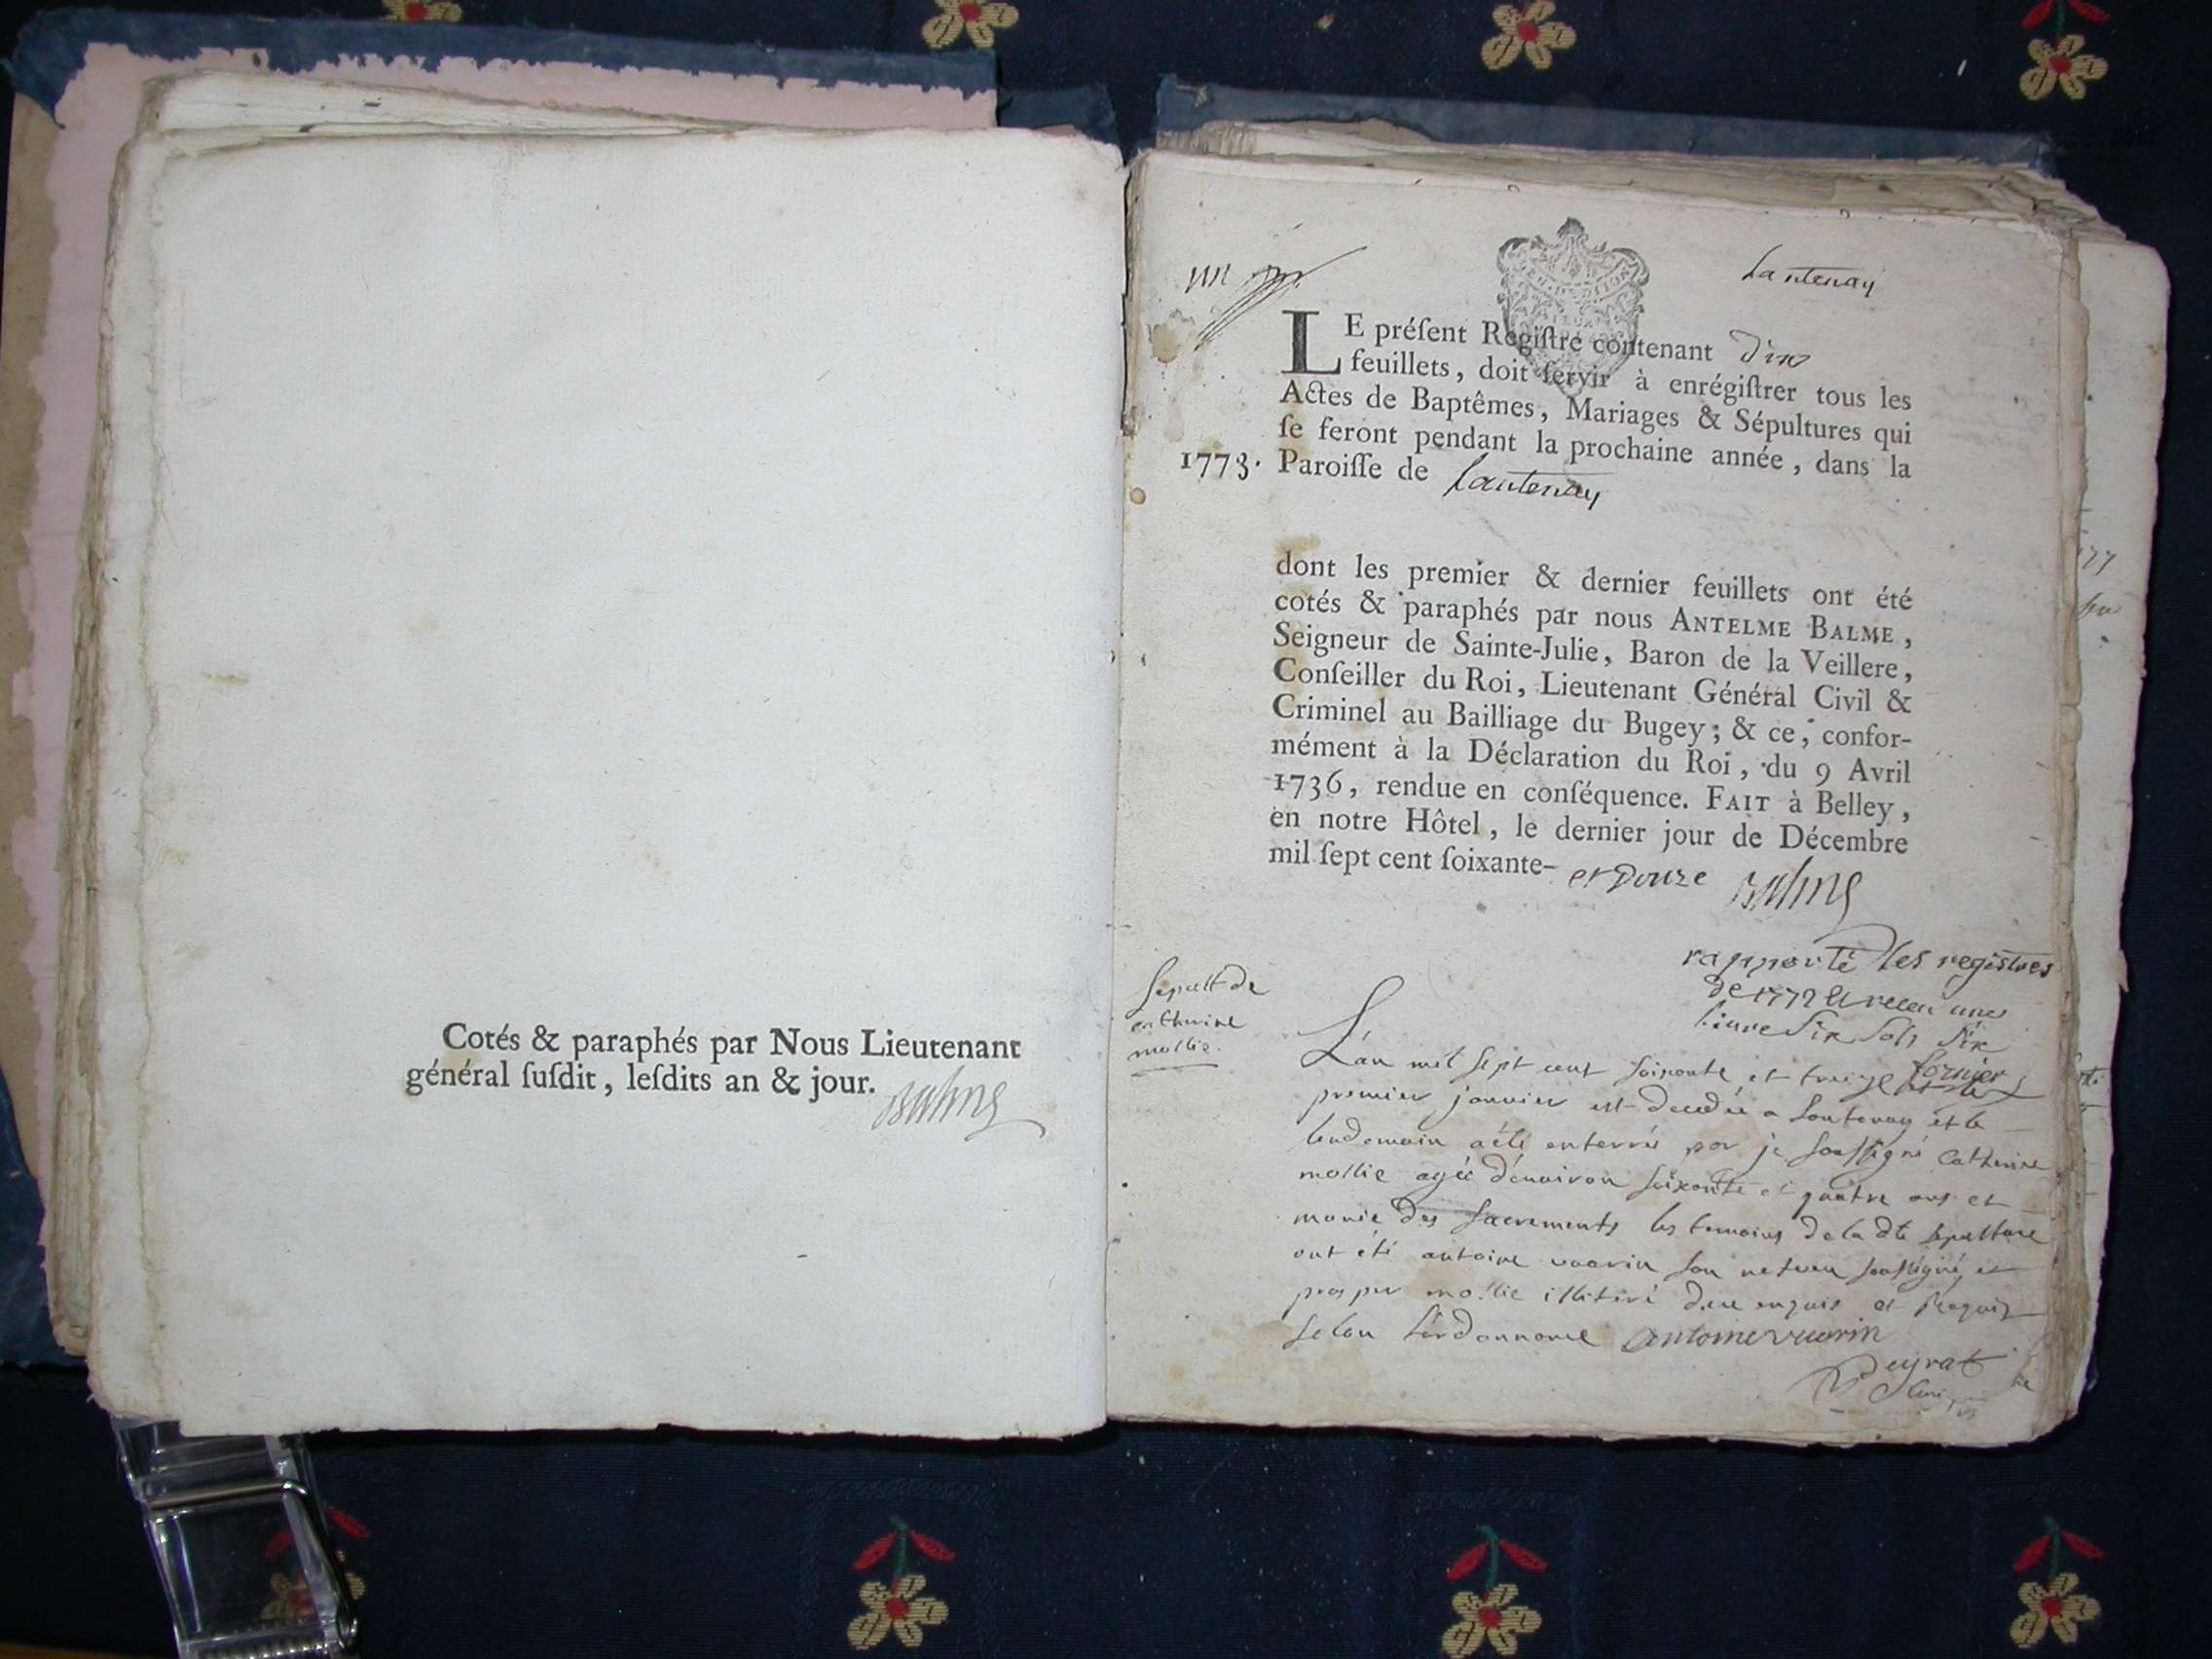 Cotés & paraphés par Nous Lieutenant
général ſuſdit, leſdits an & jour.
Balme
Lantenay
LE préſent Regiſtre contenant dix
feuillets, doit ſervir à enrégiſtrer tous les
Actes de Baptêmes, Mariages & Sépultures qui
ſe feront pendant la prochaine année, dans la
1773. Paroiſſe de Lantenay
dont les premier & dernier feuillets ont été
cotés & paraphés par nous ANTELME BALME,
Seigneur de Sainte-Julie, Baron de la Veillere,
Conſeiller du Roi, Lieutenant Général Civil &
Criminel au Bailliage du Bugey; & ce, confor-
mément à la Déclaration du Roi, du 9 Avril
1736, rendue en conſéquence. FAIT à Belley,
en notre Hôtel, le dernier jour de Décembre
mil ſept cent ſoixante- et Douze Balme
rapporté les registres
de 1772 et recu une
livre six sols six
Sepult de
catherine
mollie.
L'an mil sept cent soixante et treize et le
premier janvier est decedée a lantenay et le
lendemain a été enterrée par je soussigné Catherine
mollie agée d'environ soixante et quatre ans et
munie des sacrements les temoins de la dte sepulture
ont été antoine vuarin son neveu soussigné et
prosper mollie illiteré de ce enquis et requis
selon l'ordonnance antoine vuarin
Peyrat
Curé